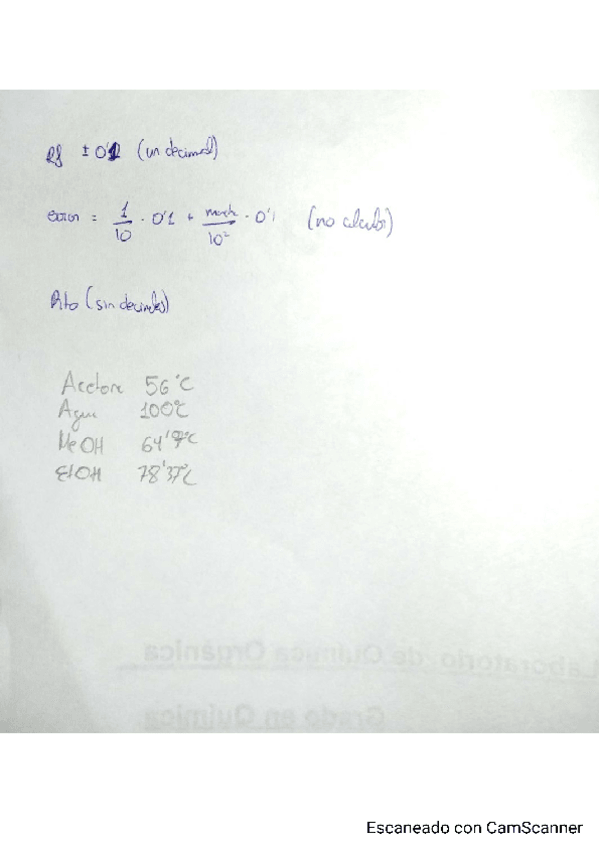 Rf ± 0'1 (un decimal)
error = 1/10 · 0'1 + mancha/10² · 0'1 (no calcular)
Rto (sin decimales)
Acetona 56°C
Agua 100°C
MeOH 64'7°C
EtOH 78'37°C
Laboratorio de Química Orgánica
Grado en Química
Escaneado con CamScanner